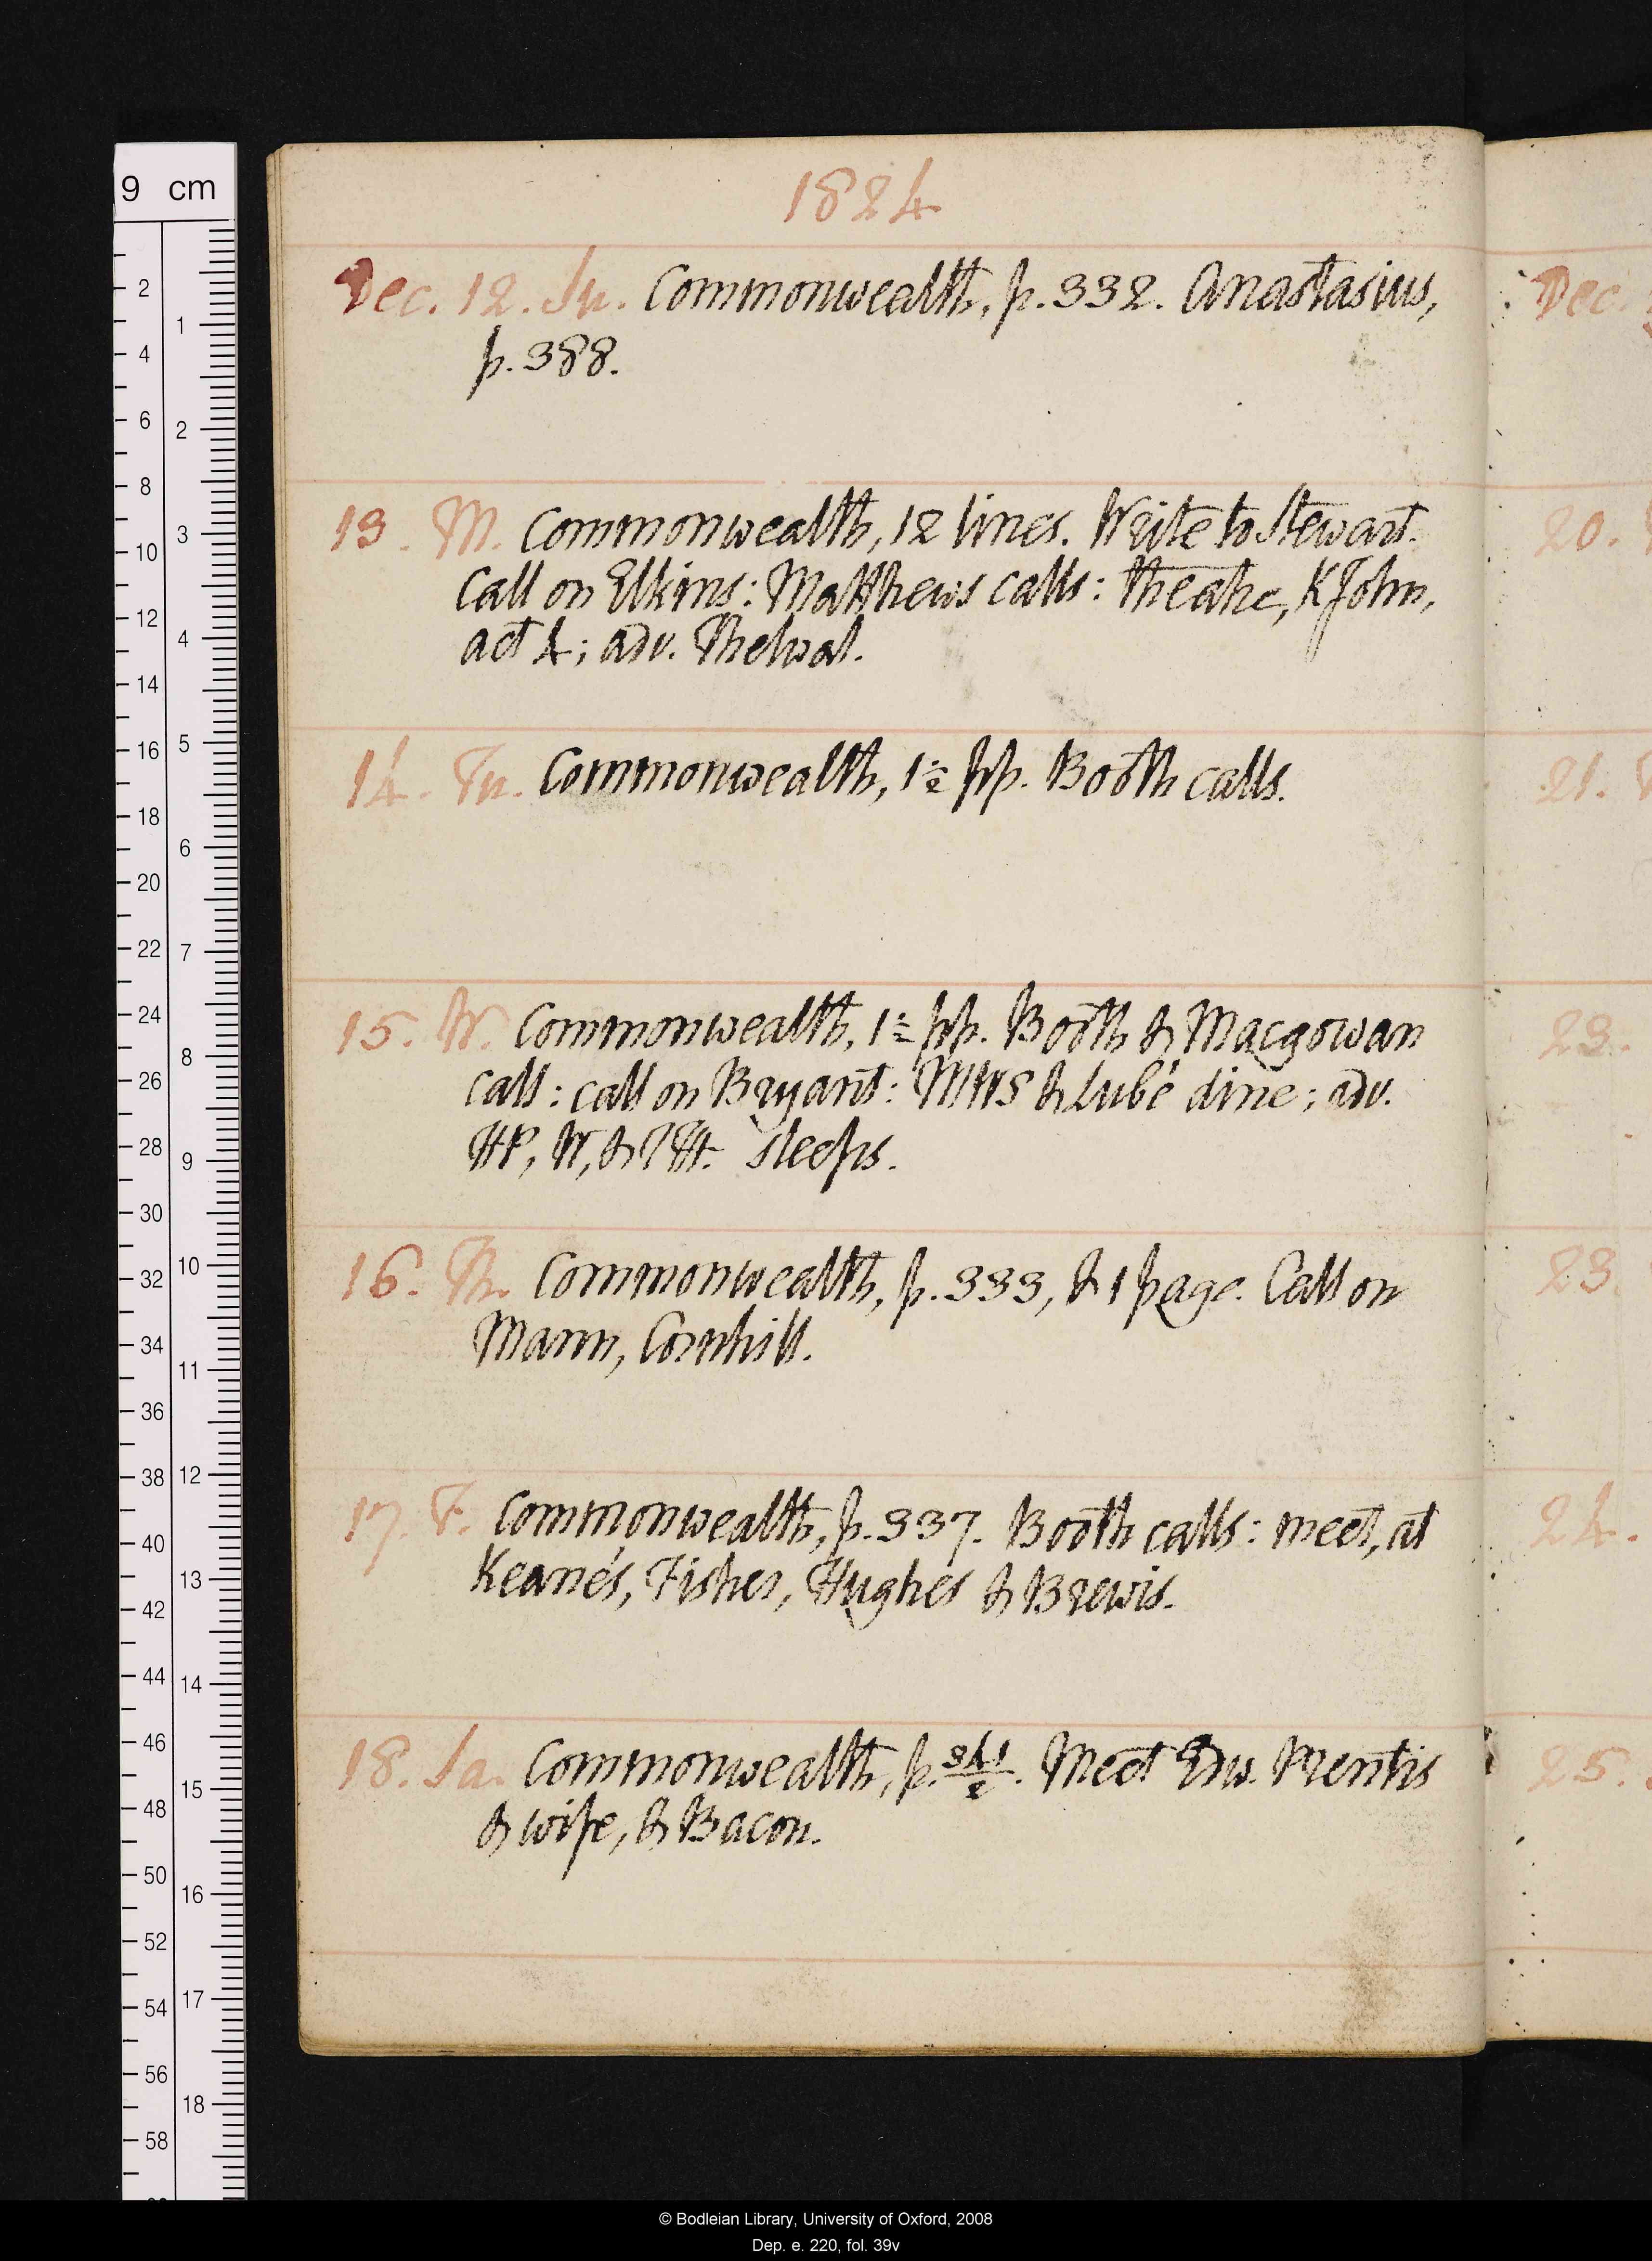 1824
Dec. 12. Su. Commonwealth, p. 332. Anastasius,
p. 388.
13. M. Commonwealth, 12 lines. Write to Stewart.
Call on Elkins: Matthews calls: theatre, K John,
act 4; adv. Thelwal.
14. Tu. Commonwealth, 1½ pp. Booth calls.
15. W. Commonwealth, 1½ pp. Booth & Macgowan
call: call on Bryant: MWS & Lubé dine; adv.
HP, W, & 
sleeps.
16. Th. Commonwealth, p. 333, & 1 page. Call on
Mann, Cornhill.
17. F. Commonwealth, p. 337. Booth calls: meet, at
Keane's, Fisher, Hughes & Brewis.
18. Sa. Commonwealth, p. 341/2. Meet Edw. Prentis
& wife, & Bacon.
Dec.
20.
21.
23.
23.
24.
25.
9 cm
2
4
6
8
10
12
14
16
18
20
22
24
26
28
30
32
34
36
38
40
42
44
46
48
50
52
54
56
58
1
2
3
4
5
6
7
8
9
10
11
12
13
14
15
16
17
18
© Bodleian Library, University of Oxford, 2008
Dep. e. 220, fol. 39v